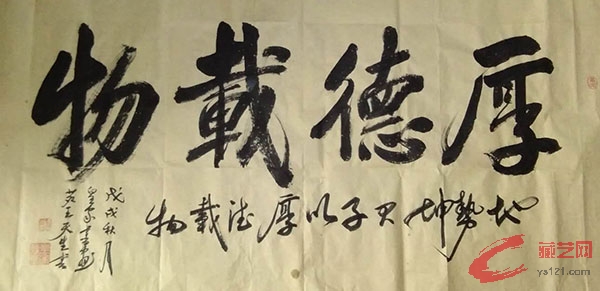 厚德載物
地勢坤君子以厚德載物
戊戌秋月
王天生書
藏艺网
ys121.com